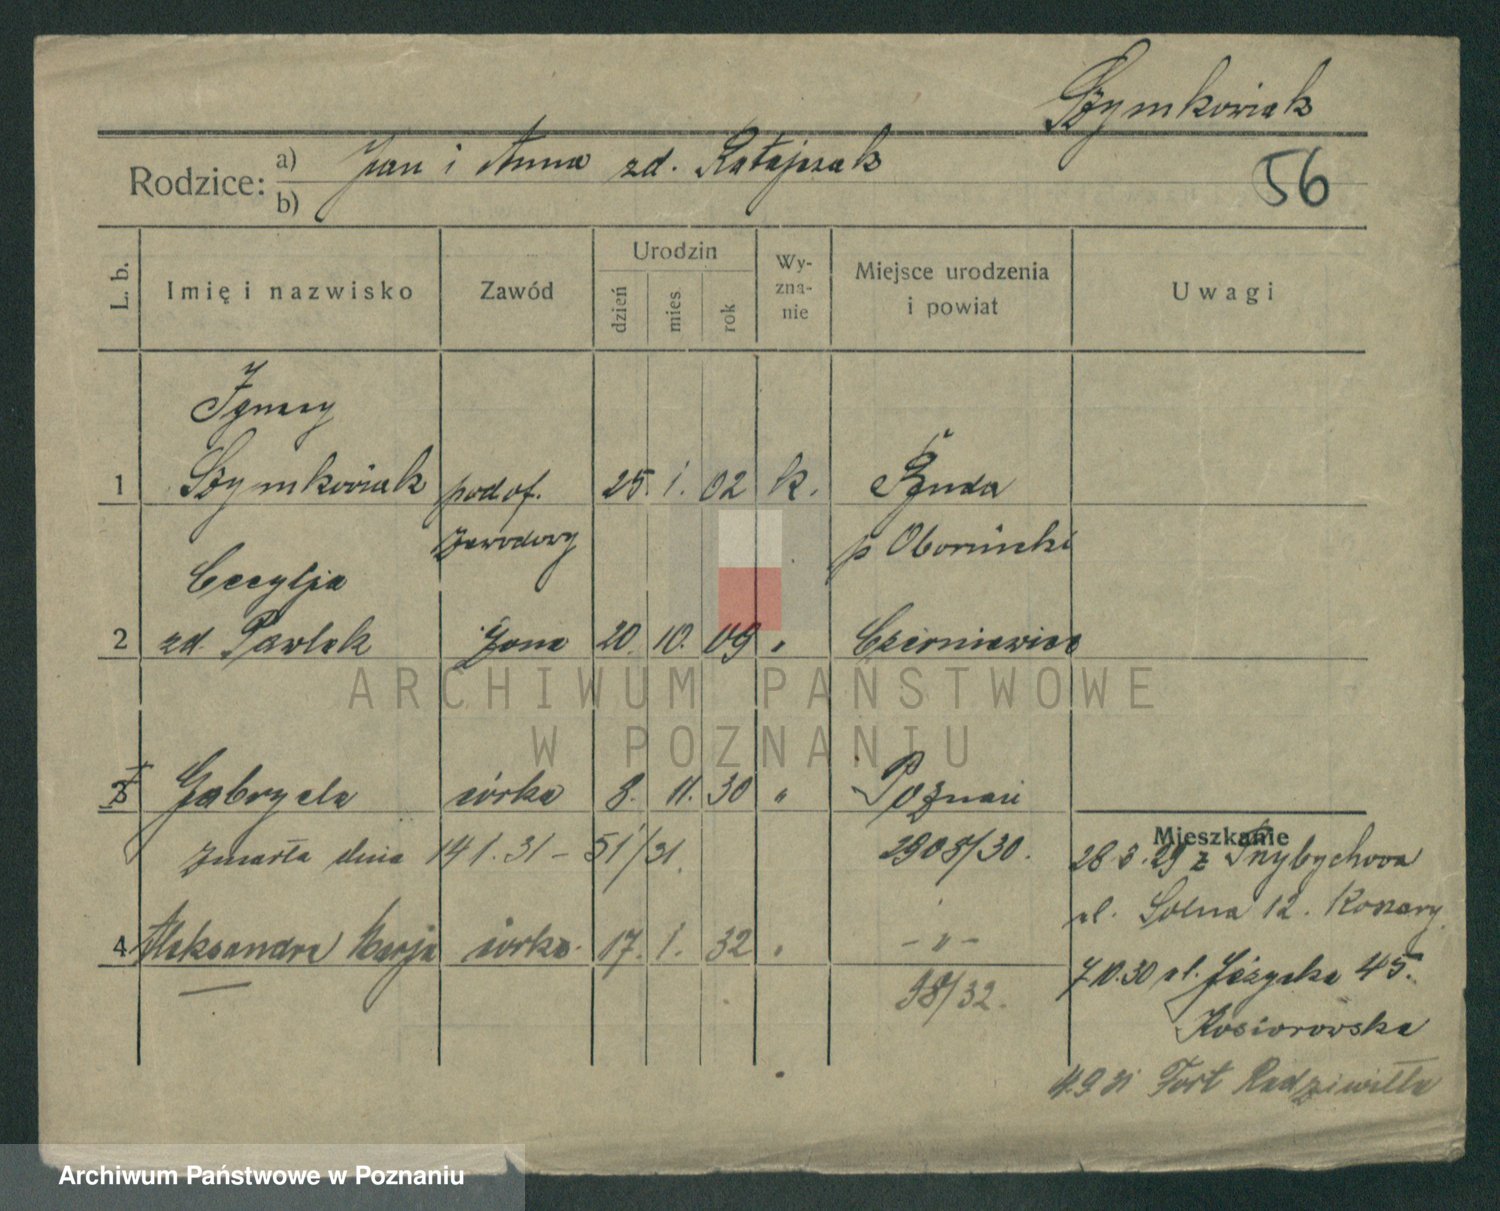 Szymkowiak
Rodzice: a) Jan i Anna zd. Ratajczak
b)
56
L. b.
Imię i nazwisko
Zawód
Urodzin
dzień
mies.
rok
Wy-
zna-
nie
Miejsce urodzenia
i powiat
Uwagi
Ignacy
1 Szymkowiak podof. 25. 1. 02 k. Ruda
zawodowy p Obornicki
Cecylja
2 zd. Pawlak żona 20. 10. 09 " Czerniewice
3 Gabryela córka 8. 11. 30 " Poznań
zmarła dnia 14 1. 31 – 51/31. 2908/30.
4 Aleksandra Marja córka 17. 1. 32 " – " –
58/32.
Mieszkanie
28.3.29 z Przybychowa
ul. Solna 12. Koszary
7 10.30 ul. Jeżycka 45.
Kosiorowska
4.9.31 Fort Radziwiłła
ARCHIWUM PAŃSTWOWE
W POZNANIU
Archiwum Państwowe w Poznaniu